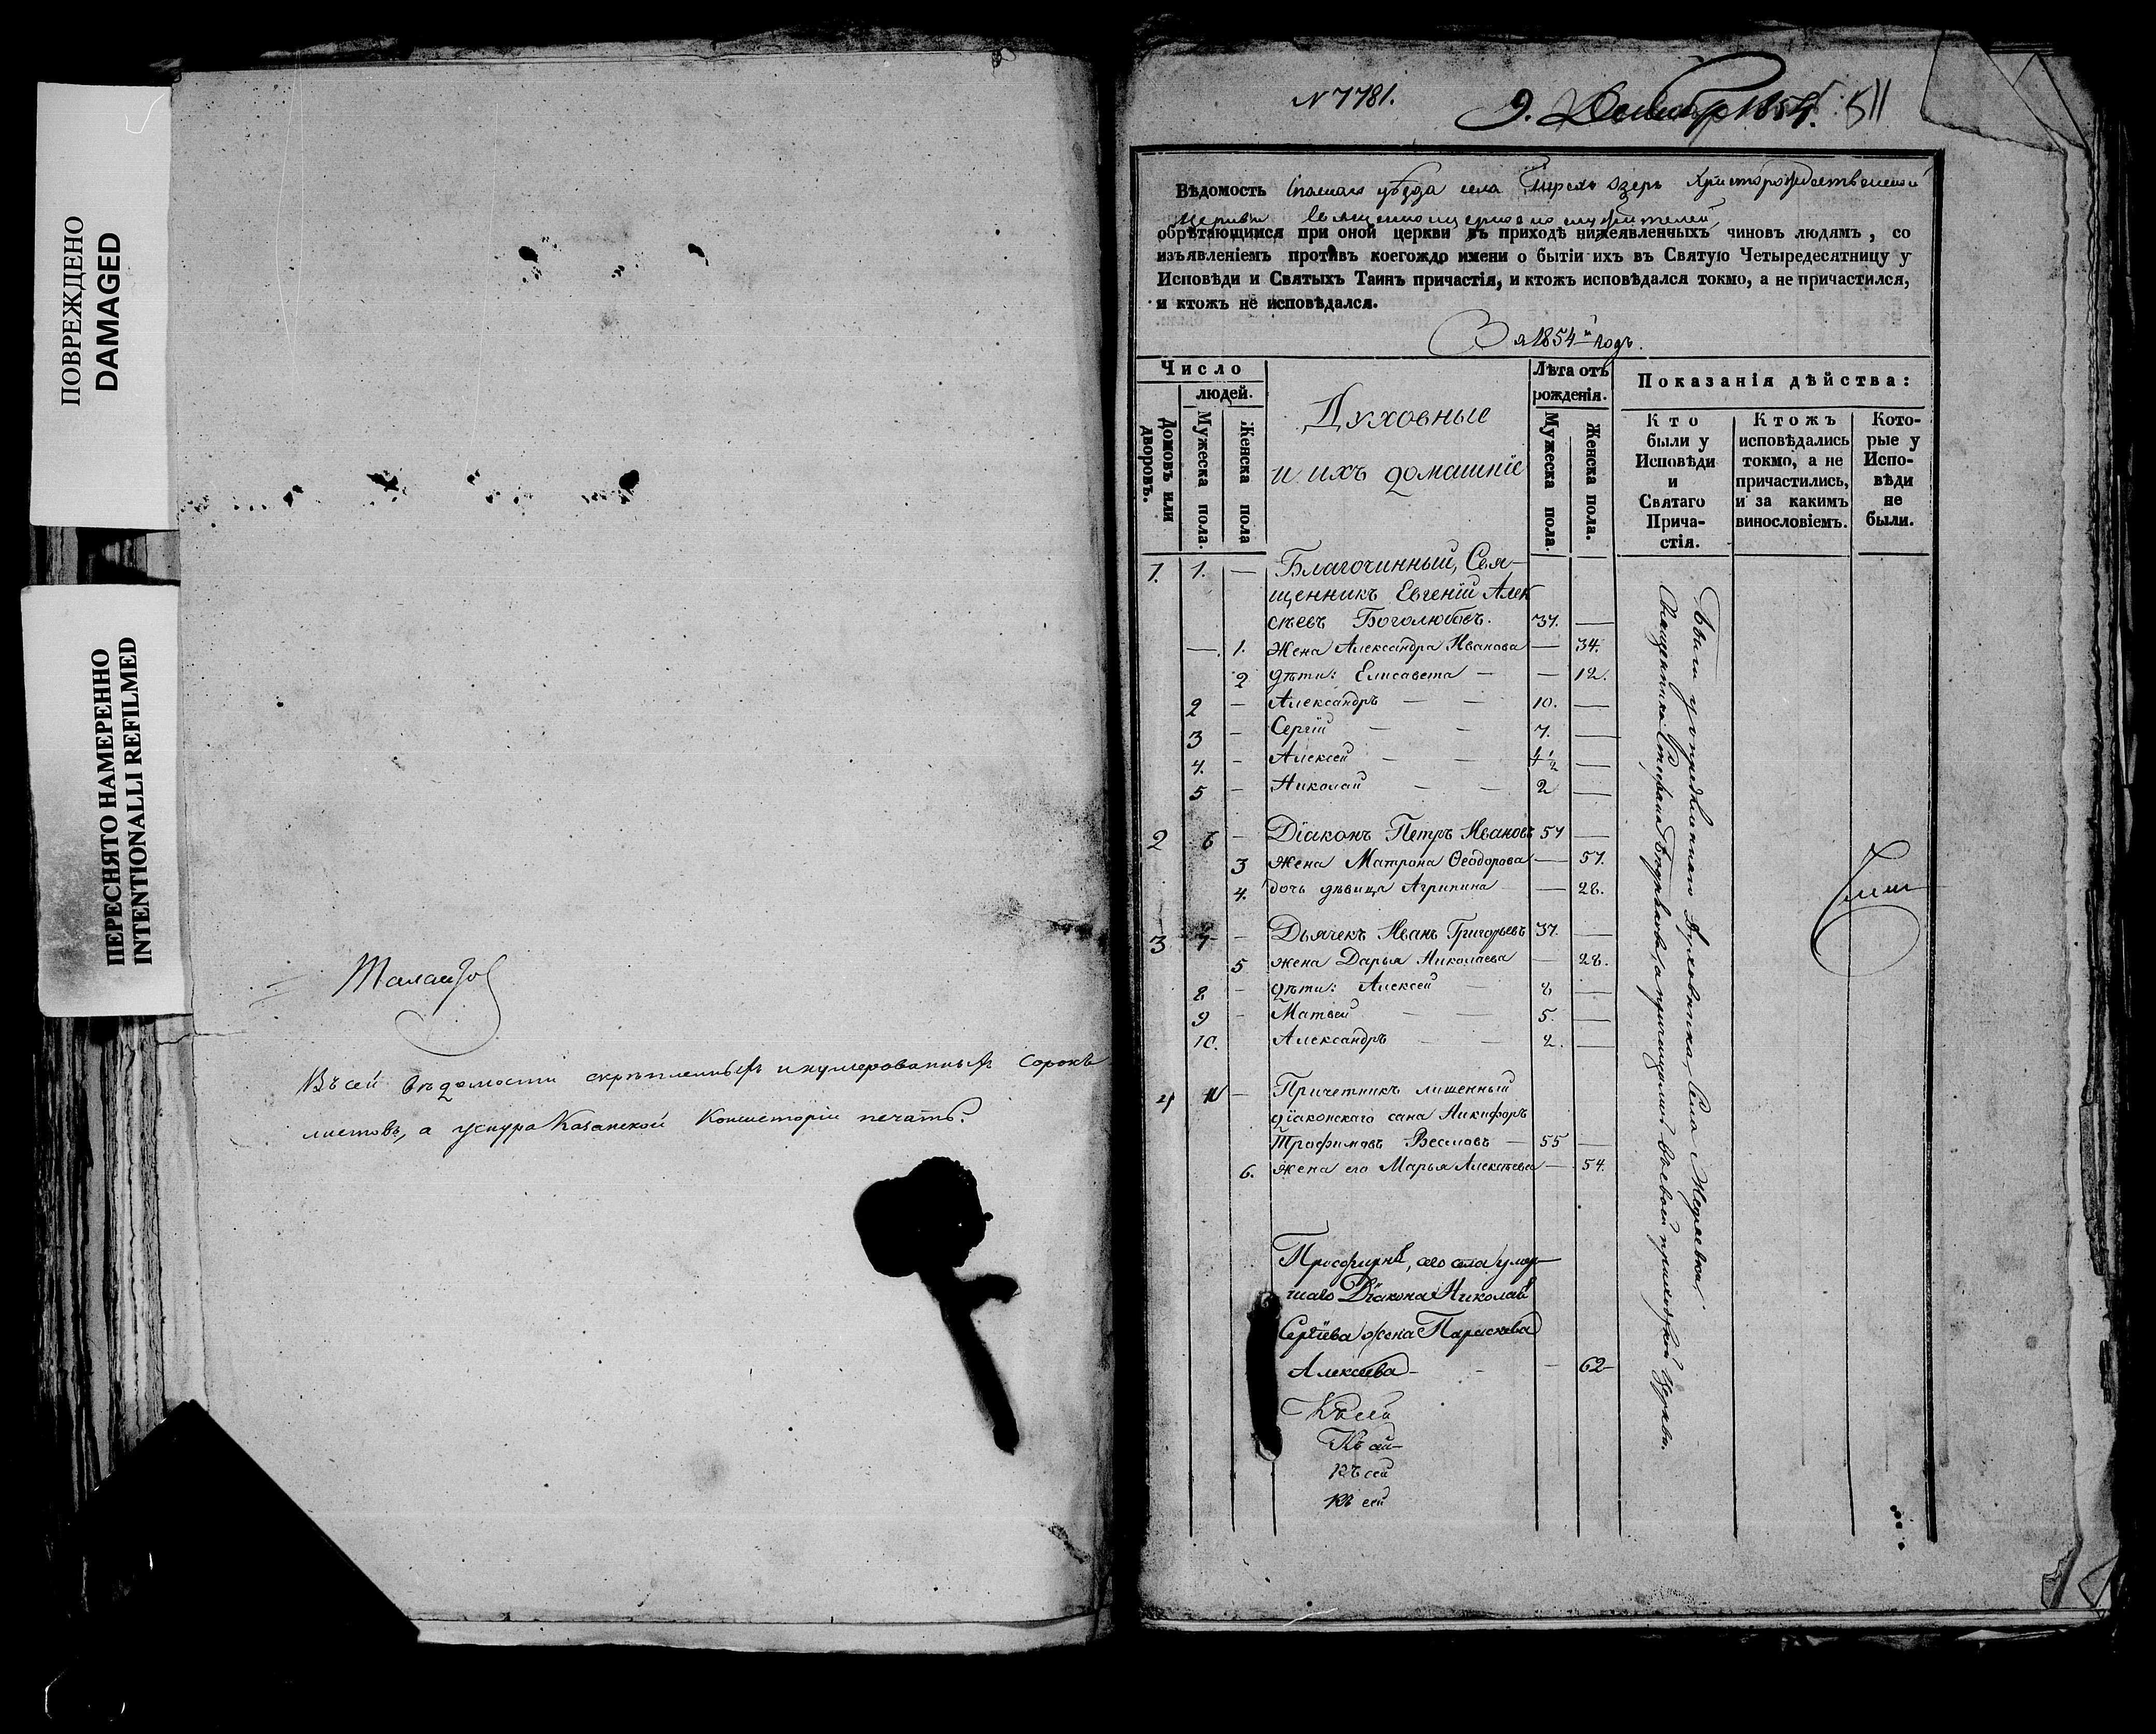 ПОВРЕЖДЕНО
DAMAGED
ПЕРЕСНЯТО НАМЕРЕННО
INTENTIONALLI REFILMED
Въ сей вѣдомости скрѣпленныхъ и нумерованныхъ сорокъ
листовъ, а у снура Казанской Консисторіи печать.
N 7781.
9. Декабря 1854. 511
Вѣдомость Спаскаго уѣзда села Озеръ Христорождественской
церкви священноцерковнослужителей
обрѣтающимся при оной церкви въ приходѣ нижеявленныхъ чиновъ людямъ, со
изъявленіемъ противъ коегождо имени о бытіи ихъ въ Святую Четыредесятницу у
Исповѣди и Святыхъ Таинъ причастія, и ктожъ исповѣдался токмо, а не причастился,
и ктожъ не исповѣдался.
За 1854й годъ.
Число
людей.
Домовъ или дворовъ.
Мужеска пола.
Женска пола
Духовные
и ихъ домашніе
Лѣта отъ
рожденія.
Мужеска пола.
Женска пола.
Показанія дѣйства:
Кто
были у
Исповѣди
и
Святаго
Прича-
стія.
Ктожъ
исповѣдались
токмо, а не
причастились,
и за какимъ
винословіемъ.
Кото-
рые у
Испо-
вѣди
не
были.
1. 1. — Благочинный, Свя-
щенникъ Евгеній Алек
сѣевъ Боголюбовъ. 37. —
—. 1. Жена Александра Иванова — 34.
2 дѣти: Елисавета — — 12.
2 — Александръ — — 10. —
3 — Сергій — — 7. —
4. — Алексей — — 4½ —
5 — Николай — — 2 —
2 6 — Діаконъ Петръ Ивановъ 57 —
3 жена Матрона Ѳеодорова — 57.
4. дочь дѣвица Агрипина — — 28.
3 7 — Дьячекъ Иванъ Григорьевъ 37. —
5 жена Дарья Николаева — 28.
8 — дѣти: Алексей — 8 —
9 — Матвей — — 5. —
10. Александръ — — 2. —
4 11 — Причетникъ лишенный
діаконскаго сана Никифоръ
Трофимовъ — 55 —
6. жена его Марья Алексѣева — 54.
Просфирня, сего села умер-
шаго Діакона Николая
Сергіева жена Параскева
Алексеева — — — 62 —
Къ сей
Къ сей
къ сей
къ сей
Были у определеннаго духовника, села
Священника Стефана а причащались въ своей приходской церкви.